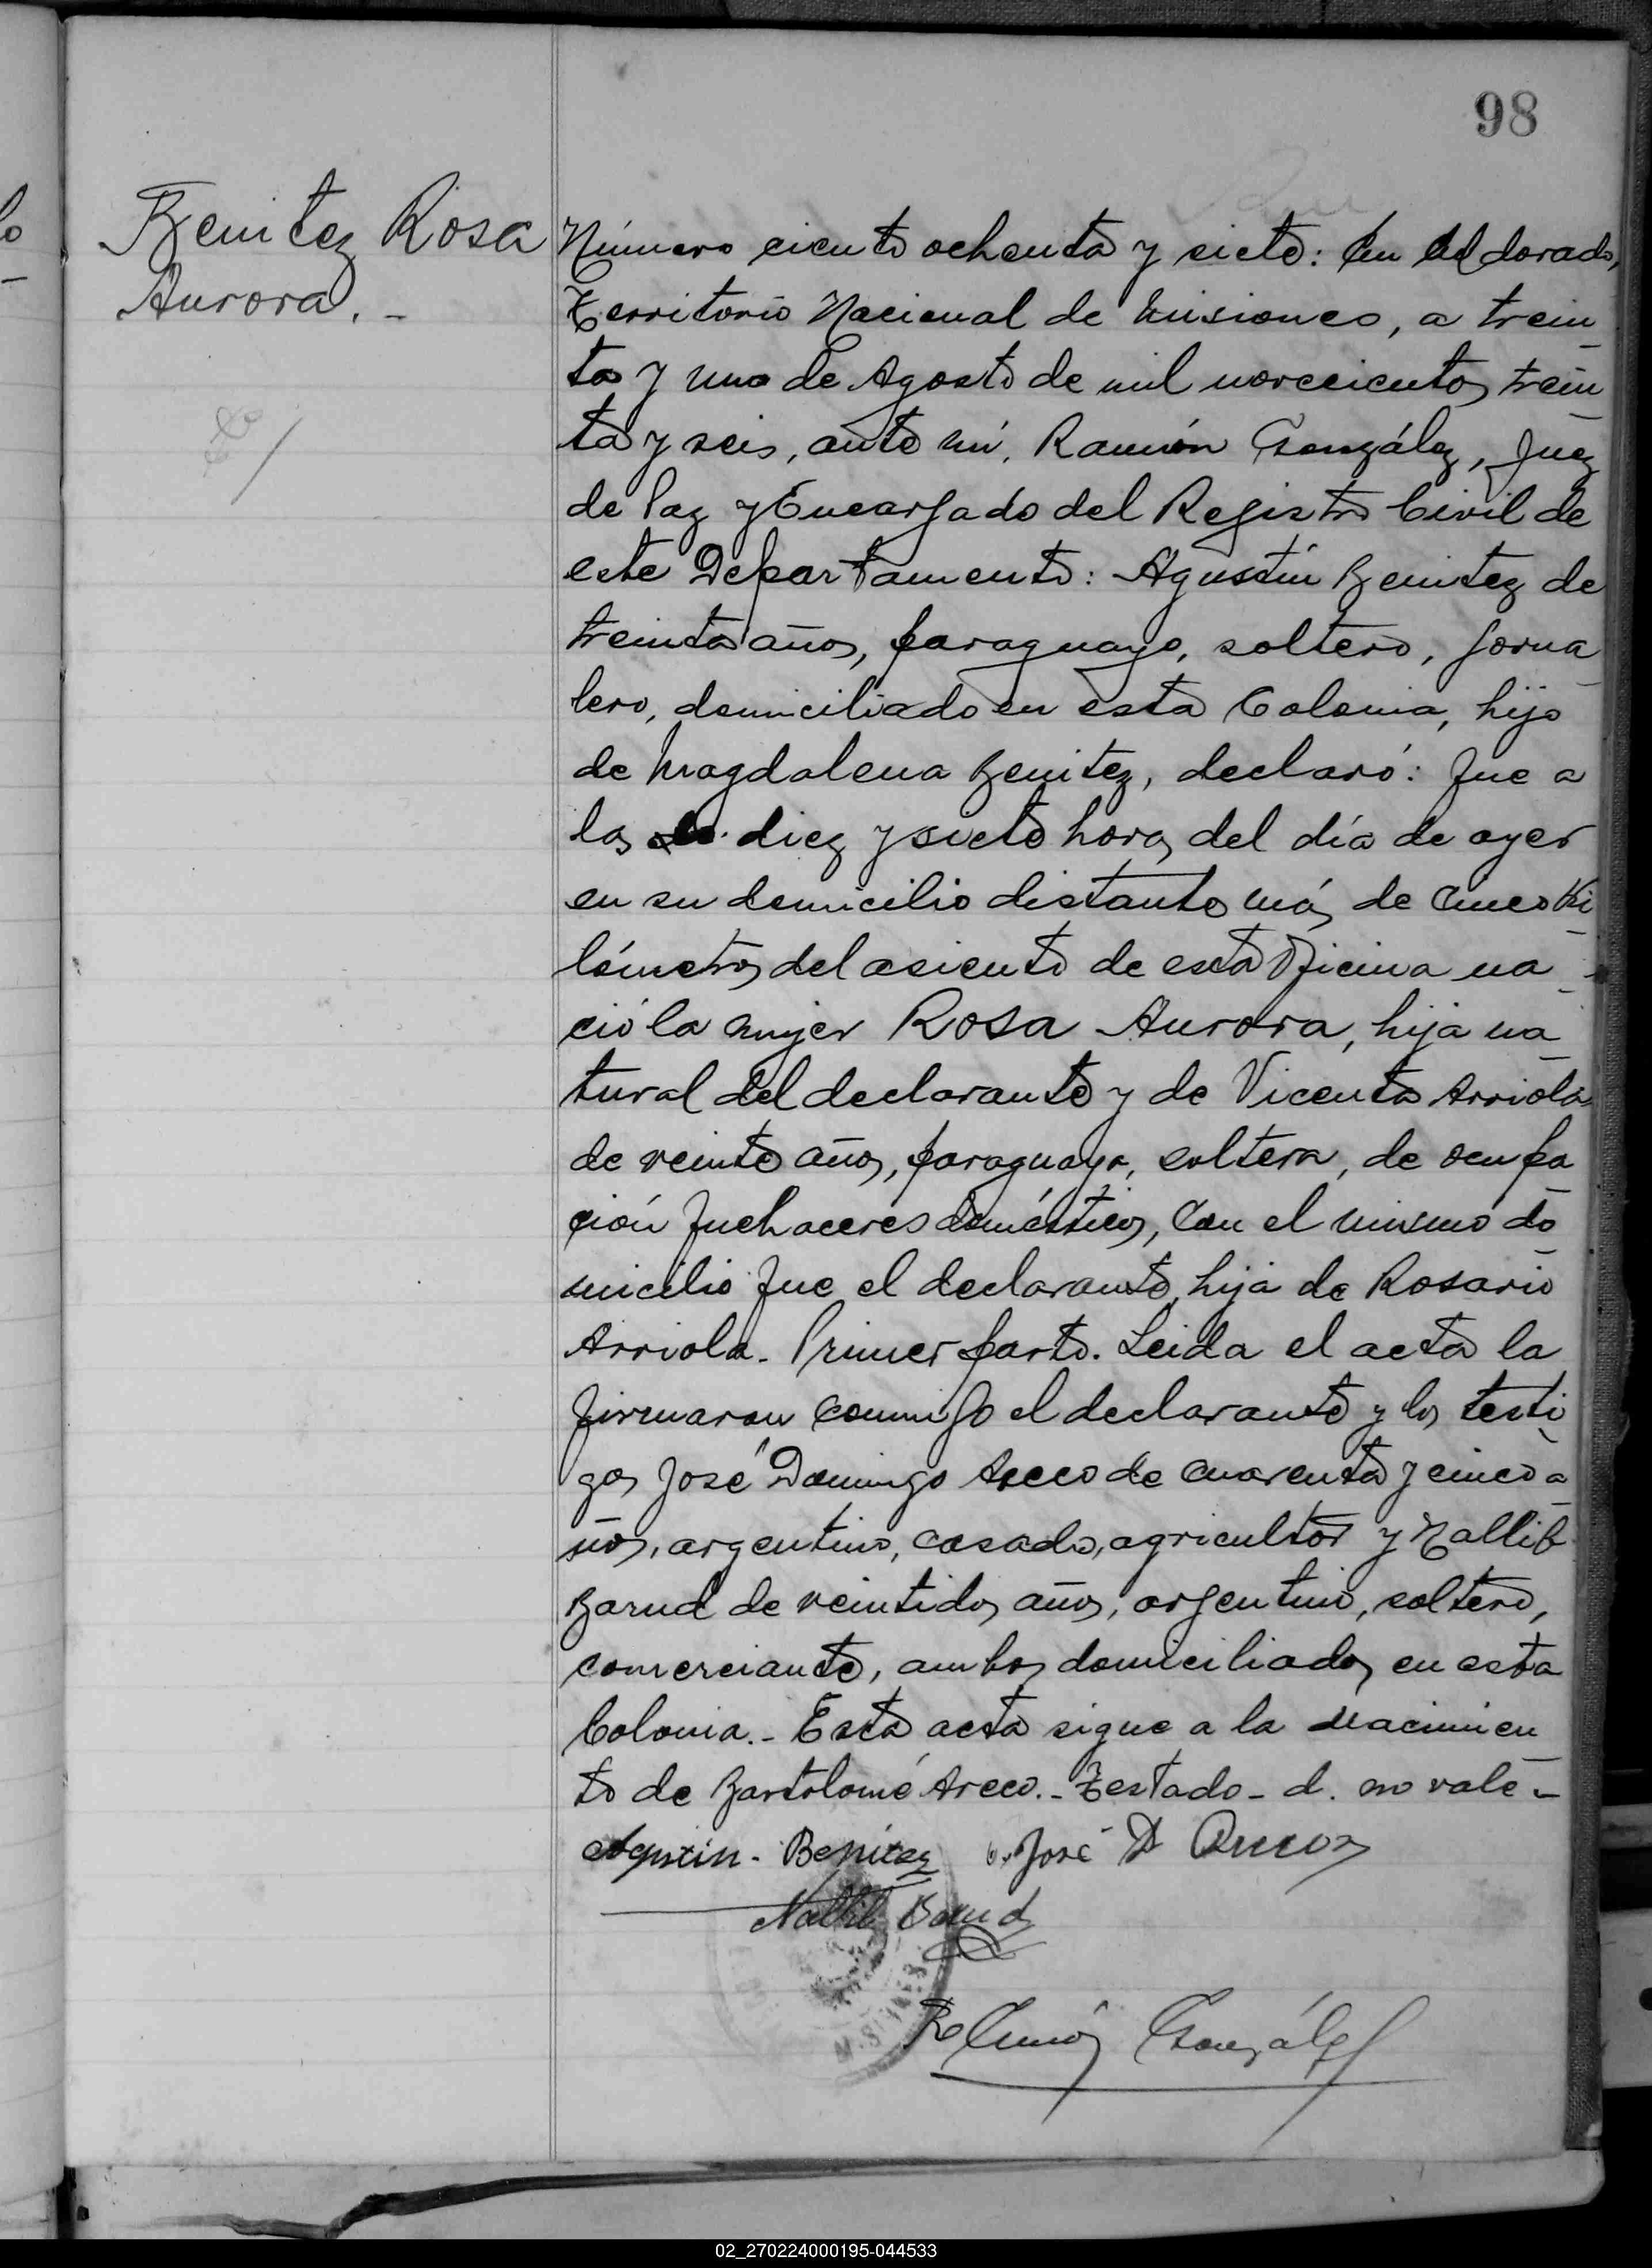 98
Benitez Rosa
Aurora. -
Número ciento ochenta y siete: En Eldorado,
Territorio Nacional de Misiones, a trein
ta y uno de Agosto de mil novecientos trein
ta y seis, ante mí, Ramón González, Juez
de Paz y Encargado del Registro Civil de
este Departamento: Agustín Benitez de
treinta años, paraguayo, soltero, jorna
lero, domiciliado en esta Colonia, hijo
de Magdalena Benitez, declaró: Que a
las diez y siete horas del día de ayer
en su domicilio distante más de cinco ki
lómetros del asiento de esta Oficina na
ció la mujer Rosa Aurora, hija na
tural del declarante y de Vicenta Arriola
de veinte años, paraguaya, soltera, de ocupa
ción quehaceres domésticos, con el mismo do
micilio que el declarante, hija de Rosario
Arriola. Primer parto. Leida el acta la
firmaron conmigo el declarante y los testi
gos José Domingo Areco de cuarenta y cinco a
ños, argentino, casado, agricultor y Nallib
Barud de veintidos años, argentino, soltero,
comerciante, ambos domiciliados en esta
Colonia.- Esta acta sigue a la nacimien
to de Bartolomé Areco.- Testado - d. no vale -
Agustin - Benitez José D Areco
Nallib Barud
Ramón González
02_270224000195-044533